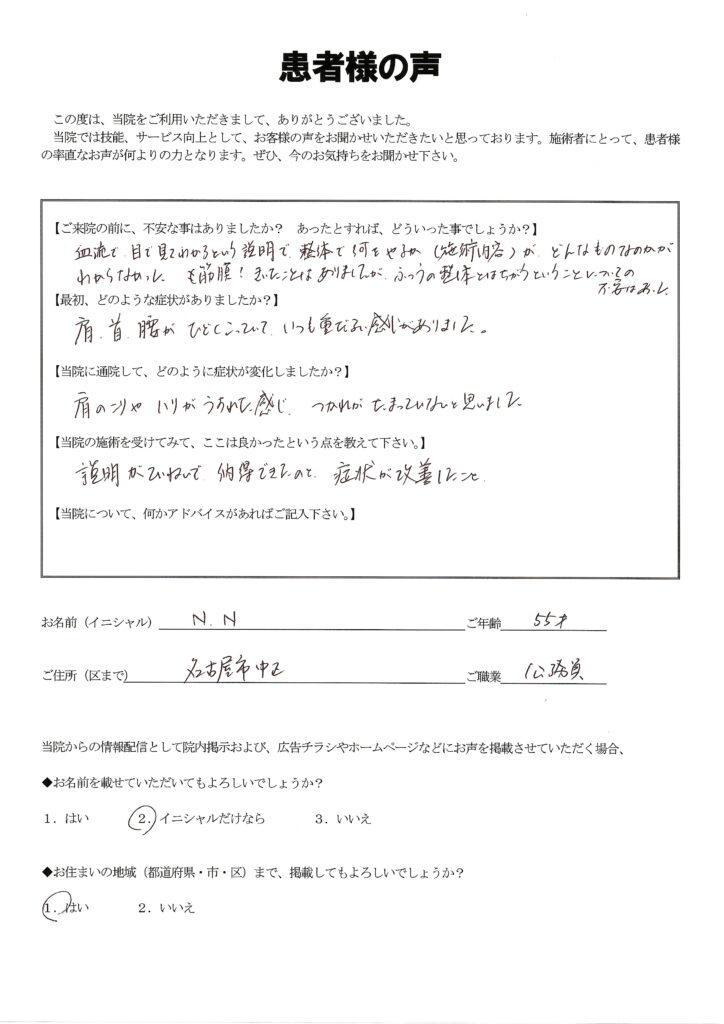 患者様の声
この度は、当院をご利用いただきまして、ありがとうございました。
当院では技能、サービス向上として、お客様の声をお聞かせいただきたいと思っております。施術者にとって、患者様
の率直なお声が何よりの力となります。ぜひ、今のお気持ちをお聞かせ下さい。
【ご来院の前に、不安な事はありましたか？　あったとすれば、どういった事でしょうか？】
血流で、目で見てわかるという説明で、整体で何をやるか（施術内容）が、どんなものなのかが
わからなかった 筋膜！ きいたことはありましたが、ふつうの整体とはちがうということについての
不安はあった。
【最初、どのような症状がありましたか？】
肩、首、腰が ひどくこっていて、いつも重だるい感じがありました。
【当院に通院して、どのように症状が変化しましたか？】
肩のこりや ハリが うすれた感じ、 つかれが たまっていないと思いました
【当院の施術を受けてみて、ここは良かったという点を教えて下さい。】
説明がていねいで、納得できたのと、症状が改善したこと、
【当院について、何かアドバイスがあればご記入下さい。】
お名前（イニシャル） N. N ご年齢 55才
ご住所（区まで） 名古屋市中区 ご職業 公務員
当院からの情報配信として院内掲示および、広告チラシやホームページなどにお声を掲載させていただく場合、
◆お名前を載せていただいてもよろしいでしょうか？
１．はい　２．イニシャルだけなら　３．いいえ
◆お住まいの地域（都道府県・市・区）まで、掲載してもよろしいでしょうか？
１．はい　２．いいえ